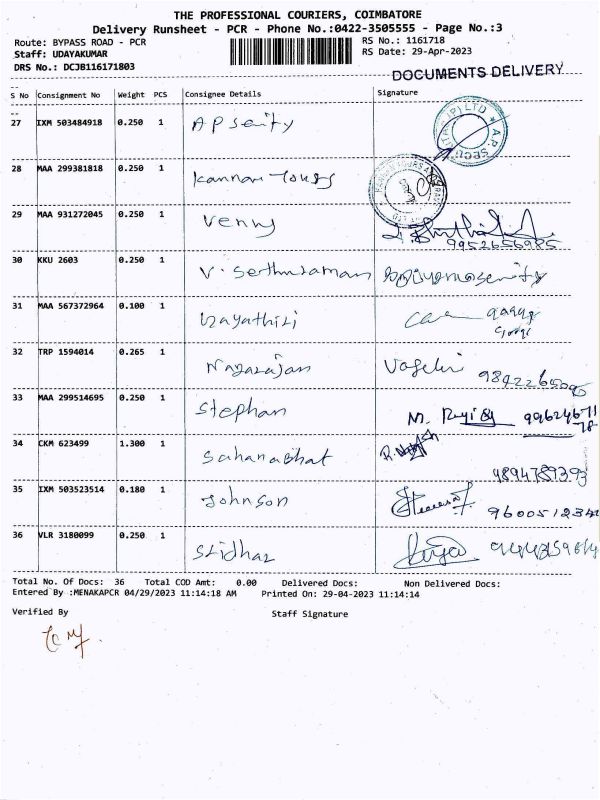 THE PROFESSIONAL COURIERS, COIMBATORE
Delivery Runsheet - PCR - Phone No.:0422-3505555 - Page No.:3
Route: BYPASS ROAD - PCR RS No.: 1161718
Staff: UDAYAKUMAR RS Date: 29-Apr-2023
DRS No.: DCJB116171803
DOCUMENTS DELIVERY
S No Consignment No Weight PCS Consignee Details Signature
27 IXM 503484918 0.250 1 A P Serity
28 MAA 299381818 0.250 1 Kannan Tours
29 MAA 931272045 0.250 1 Venny
9952656985
30 KKU 2603 0.250 1 V. Sethuraman
31 MAA 567372964 0.100 1 Gayathiri
32 TRP 1594014 0.265 1 Nagarajan
33 MAA 299514695 0.250 1 Stephan
34 CKM 623499 1.300 1 Sahanabhat
9894789393
35 IXM 503523514 0.180 1 Johnson
36 VLR 3180099 0.250 1 Sridhar
Total No. Of Docs: 36 Total COD Amt: 0.00 Delivered Docs: Non Delivered Docs:
Entered By :MENAKAPCR 04/29/2023 11:14:18 AM Printed On: 29-04-2023 11:14:14
Verified By Staff Signature